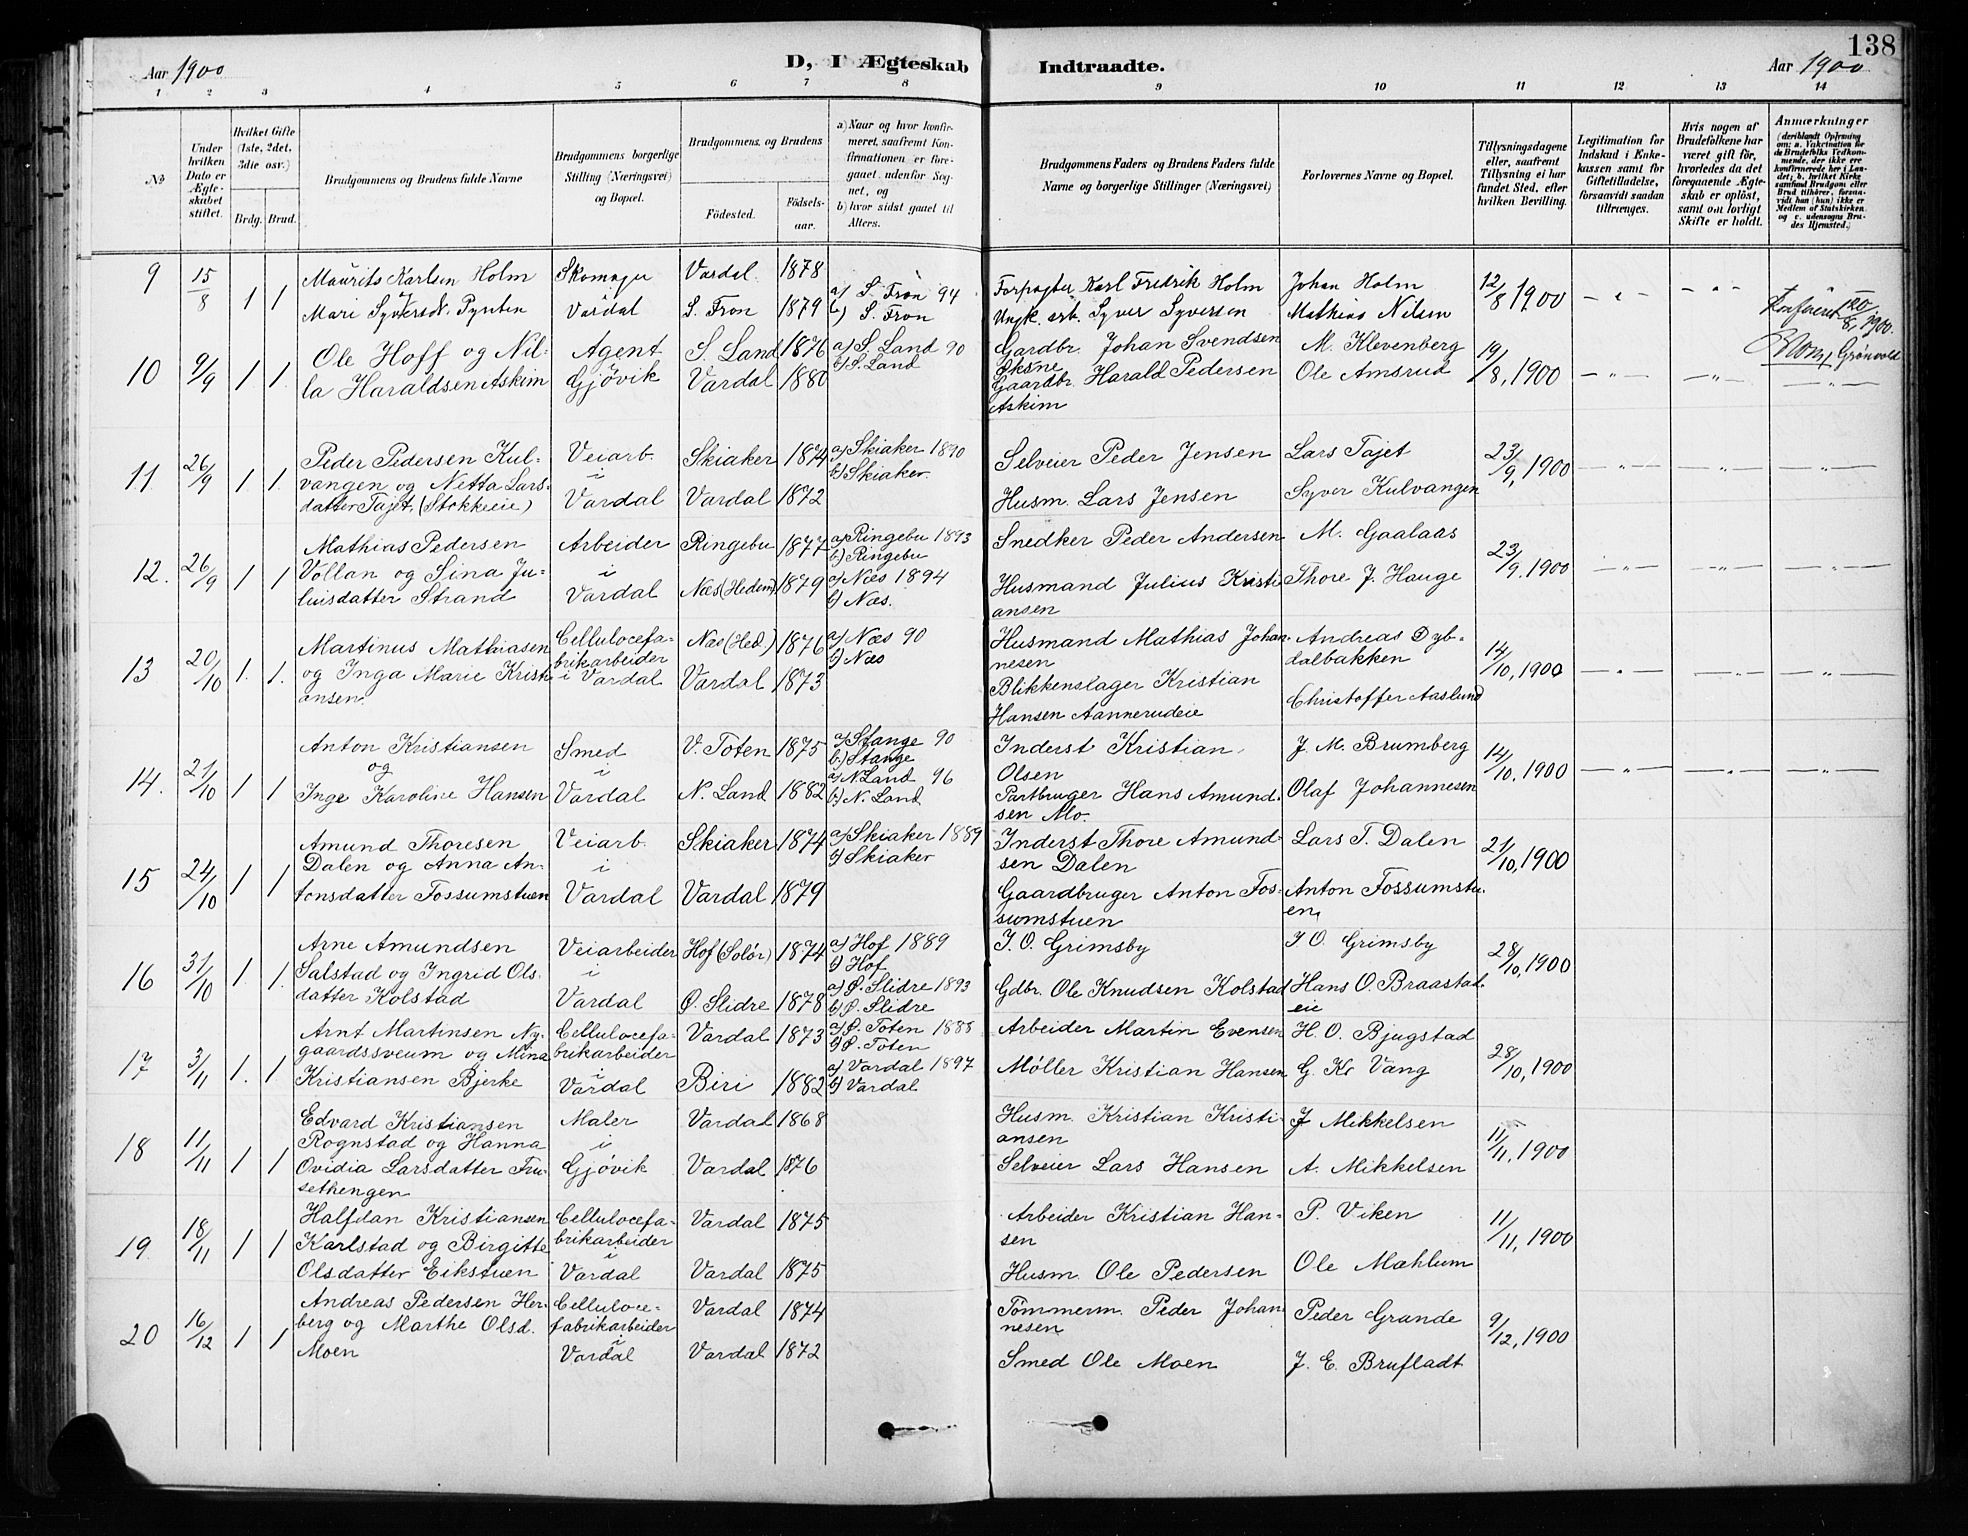 138
Aar 1900
D, I Ægteskab Indtraadte.
Aar 1900
1 2 3 4 5 6 7 8 9 10 11 12 13 14
No
Under hvilken Dato er Ægteskabet stiftet.
Hvilket Gifte (1ste, 2det, 3die osv.)
Brdg. Brud.
Brudgommens og Brudens fulde Navne
Brudgommens borgerlige Stilling (Næringsvei) og Bopæl.
Brudgommens og Brudens
Fødested.
Fødselsaar.
a) Naar og hvor konfirmeret, saafremt Konfirmationen er foregaaet udenfor Sognet, og
b) hvor sidst gaaet til Alters.
Brudgommens Faders og Brudens Faders fulde Navne og borgerlige Stillinger (Næringsvei)
Forlovernes Navne og Bopæl.
Tillysningsdagene eller, saafremt Tillysning ei har fundet Sted, efter hvilken Bevilling.
Legitimation for Indskud i Enkekassen samt for Giftetilladelse, forsaavidt saadan tiltrænges.
Hvis nogen af Brudefolkene har været gift før, hvorledes da det foregaaende Ægteskab er opløst, samt om lovligt Skifte er holdt.
Anmærkninger
(deriblandt Oplysning om: a. Vakcination for de Brudefolks Vedkommende, der ikke ere konfirmerede her i Landet; b. hvilket Kirkesamfund Brudgom eller Brud tilhører, forsaavidt han (hun) ikke er Medlem af Statskirken og c. udensogns Brudes Hjemsted.)
9 15/8 1 1 Maurits Karlsen Holm Skomager Vardal 1878 Forpagter Karl Fredrik Holm Johan Holm 12/8 1900 — " — — " —
Mari Syversd. Pynten Vardal S. Fron 1879 a) S. Fron 94 b) S. Fron Ungk. arb. Syver Syversen Mathias Nilsen
Konfereret 20/8, 1900.
Grønvold
10 9/9 1 1. Ole Hoff og Nil- Agent S. Land 1876 a) S. Land 90 b) S. Land Gardbr. Johan Svendsen Eksne M. Klevenberg 19/8, 1900 — " — — " — — " —
la Haraldsen Askim Gjøvik Vardal 1880 Gaardbr. Harald Pedersen Askim Ole Amsrud
11 26/9 1. 1. Peder Pedersen Kul- Veiarb. Skiaker 1874 a) Skiaker 1890 b) Skiaker. Selveier Peder Jensen Lars Tajet 23/9, 1900 — " — — " — — " —
vangen og Netta Lars- i
datter Tajet, (Stokkeeie) Vardal Vardal 1872 Husm. Lars Jensen Syver Kulvangen
12. 26/9 1 1 Mathias Pedersen Arbeider Ringebu 1877 a) Ringebu 1893 b) Ringebu Snedker Peder Andersen M. Gaalaas 23/9, 1900 — " — — " — — " —
Vollan og Sina Ju- i
liusdatter Strand Vardal Næs (Hedem) 1879 a) Næs 1894 b) Næs. Husmand Julius Kristiansen Thore J. Hauge
13 20/10 1. 1. Martinus Mathiasen Cellulocefa- Næs (Hed.) 1876 a) Næs 90 b) Næs Husmand Mathias Johannesen Andreas Dybdalbakken 14/10, 1900 — " — — " — — " —
og Inga Marie Kristi- brikarbeider
ansen. i Vardal Vardal 1873 Blikkenslager Kristian Hansen Aannerudeie Christoffer Aaslund
14. 21/10 1 1 Anton Kristiansen Smed V. Toten 1875 a) Stange 90 b) Stange Inderst Kristian Olsen J. M. Brumberg 14/10, 1900 — " — — " — — " —
og i
Inge Karoline Hansen Vardal N. Land 1882 a) N. Land 96 b) N. Land Partbruger Hans Amundsen Mo. Olaf Johannesen
15 24/10 1 1 Amund Thoresen Veiarb. Skiaker 1874 a) Skiaker 1889 b) Skiaker Inderst Thore Amundsen Dalen Lars T. Dalen 21/10, 1900
Dalen og Anna An- i
tonsdatter Fossumstuen Vardal Vardal 1879 Gaardbruger Anton Fossumstuen Anton Fossumstuen
16 31/10 1. 1. Arne Amundsen Veiarbeider Hof (Solør) 1874 a) Hof 1889 b) Hof J. O. Grimsby J O. Grimsby 28/10, 1900
Salstad og Ingrid Ols- i
datter Kolstad Vardal Ø. Slidre 1878 a) Ø. Slidre 1893 b) Ø. Slidre Gdbr. Ole Knudsen Kolstad Hans O. Braastadeie
17 3/11 1. 1 Arnt Martinsen Ny- Cellulocefa- Vardal 1873 a) Ø. Toten 1888 b) Ø. Toten Arbeider Martin Evensen H. O. Bjugstad 28/10, 1900
gaardssveum og Mina brikarbeider i
Kristiansen Bjerke Vardal Biri 1882 a) Vardal 1897 b) Vardal Møller Kristian Hansen G. Kr Vang
18 11/11 1 1 Edvard Kristiansen Maler Vardal 1868 Husm. Kristian Kristiansen J Mikkelsen 11/11, 1900
Rognstad og Hanna i
Ovidia Larsdatter Fru- Gjøvik Vardal 1876 Selveier Lars Hansen A. Mikkelsen
sethengen
19 18/11 1 1 Halfdan Kristiansen Cellulocefa- Vardal 1875 Arbeider Kristian Hansen P. Viken 11/11, 1900
Karlstad og Birgitte brikarbeider i
Olsdatter Eikstuen Vardal Vardal 1875 Husm. Ole Pedersen Ole Mæhlum
20 16/12 1 1 Andreas Pedersen Her- Celluloce- Vardal 1874 Tømmerm. Peder Johannesen Peder Grande 9/12, 1900
berg og Marthe Olsd. fabrikarbeider i
Moen Vardal Vardal 1872 Smed Ole Moen J. E. Brufladt